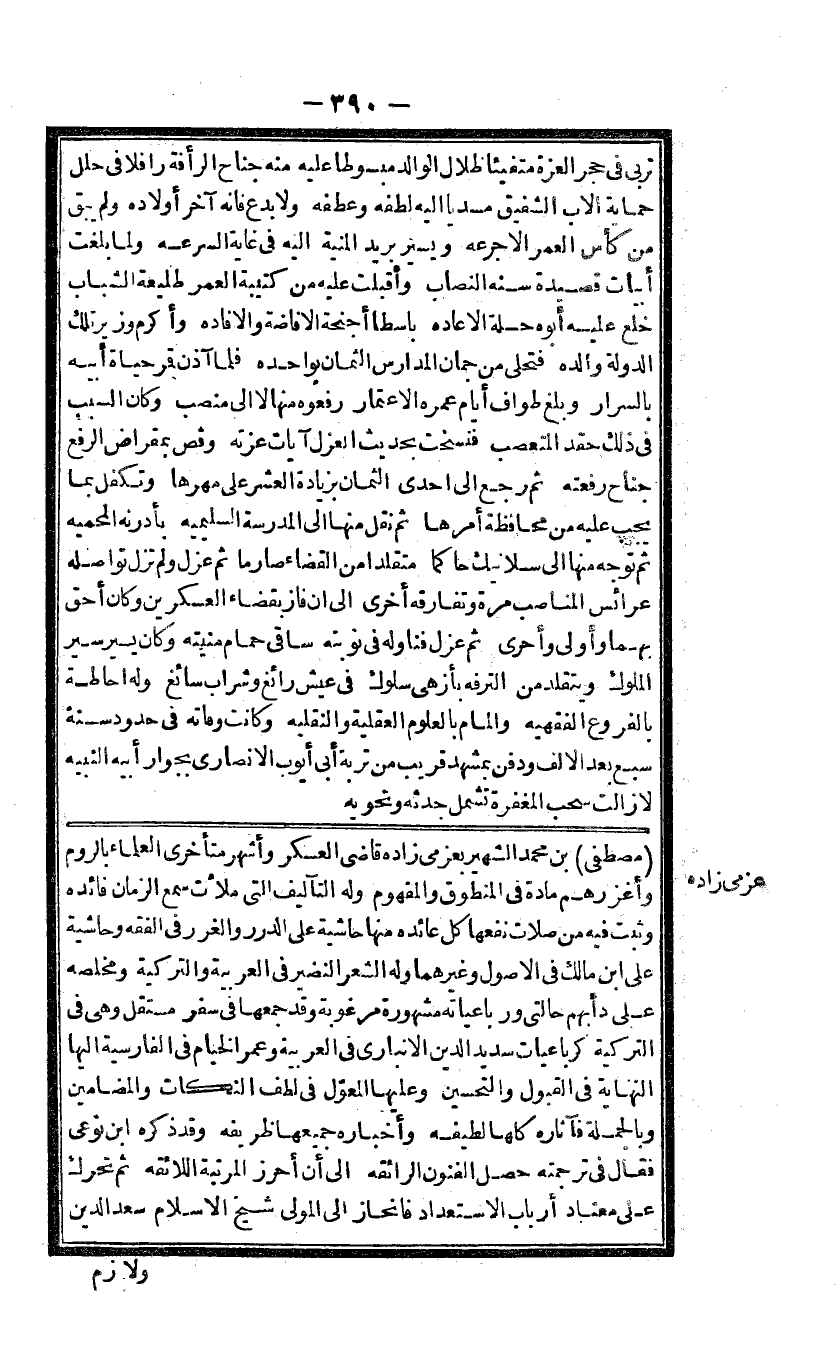 — ٣٩٠ —
تربى فى حجر العزة متفيئا ظلال الوالد مبسوطا عليه منه جناح الرأفة رافلا فى حلل
حماية الاب الشفيق مسديا اليه لطفه وعطفه ولا بدع فانه آخر أولاده ولم يبق
من كأس العمر الاجرعه ويسير بريد المنية اليه فى غاية السرعه ولما بلغت
أبيات قصيدة سنه النصاب وأقبلت عليه من كتيبة العمر طليعة الشباب
خلع عليه أبوه حلة الاعاده باسطا أجنحة الافاضة والافاده وأكرم وزير تلك
الدولة والده فتحلى من جمان المدارس الثمان بواحده فلما آذن قر حياة أبيه
بالسرار وبلغ طواف أيام عمره الاعتمار رفعوه منها لا الى منصب وكان السبب
فى ذلك حقد المتعصب فنسخت بحديث العزل آيات عزته وقص بمقراض الرفع
جناح رفعته ثم رجع الى احدى الثمان بزيادة العشر على مهرها وتكفل بما
يجب عليه من محافظة أمرها ثم نقل منها الى المدرسة السليميه بأدرنه المحميه
ثم توجه منها الى سلانيك حاكما متقلدا من القضاء صارما ثم عزل ولم تزل تواصله
عرائس المناصب مرة وتفارقه أخرى الى ان فاز بقضاء العسكرين وكان أحق
بهما وأولى وأحرى ثم عزل فناوله فى نوبته ساقى حمام منيته وكان يسير سير
الملوك ويتقلد من الترفه بأزهى سلوك فى عيش رائغ وشراب سائغ وله احاطة
بالفروع الفقهيه والمام بالعلوم العقلية والنقليه وكانت وفاته فى حدود سنة
سبع بعد الالف ودفن بمشهد قريب من تربة أبى أيوب الانصارى بجوار أبيه النبيه
لا زالت سحب المغفرة تشمل جدثه وتحويه
(مصطفى) بن محمد الشهير بعزمى زاده قاضى العسكر وأشهر متأخرى العلماء بالروم
عزمى زاده
وأغزرهم مادة فى المنطوق والمفهوم وله التآليف التى ملأت سمع الزمان فائده
وثبت فيه من صلات نفعها كل عائده منها حاشية على الدرر والغرر فى الفقه وحاشية
على ابن مالك فى الاصول وغيرهما وله الشعر النضير فى العربية والتركية ومخلصه
على دأبهم حالتى ورباعياته مشهورة مرغوبة وقد جمعها فى سفر مستقل وهى فى
التركية كرباعيات سديد الدين الانبارى فى العربية وعمر الخيام فى الفارسية اليها
النهاية فى القبول والتحسين وعليها المعوّل فى لطف النكات والمضامين
وبالجملة فآثاره كلها لطيفه وأخباره جميعها ظريفه وقد ذكره ابن نوعى
فقال فى ترجمته حصل الفنون الرائقه الى أن أحرز المرتبة اللائقه ثم تحرك
على معتاد أرباب الاستعداد فانحاز الى المولى شيخ الاسلام سعد الدين
ولازم